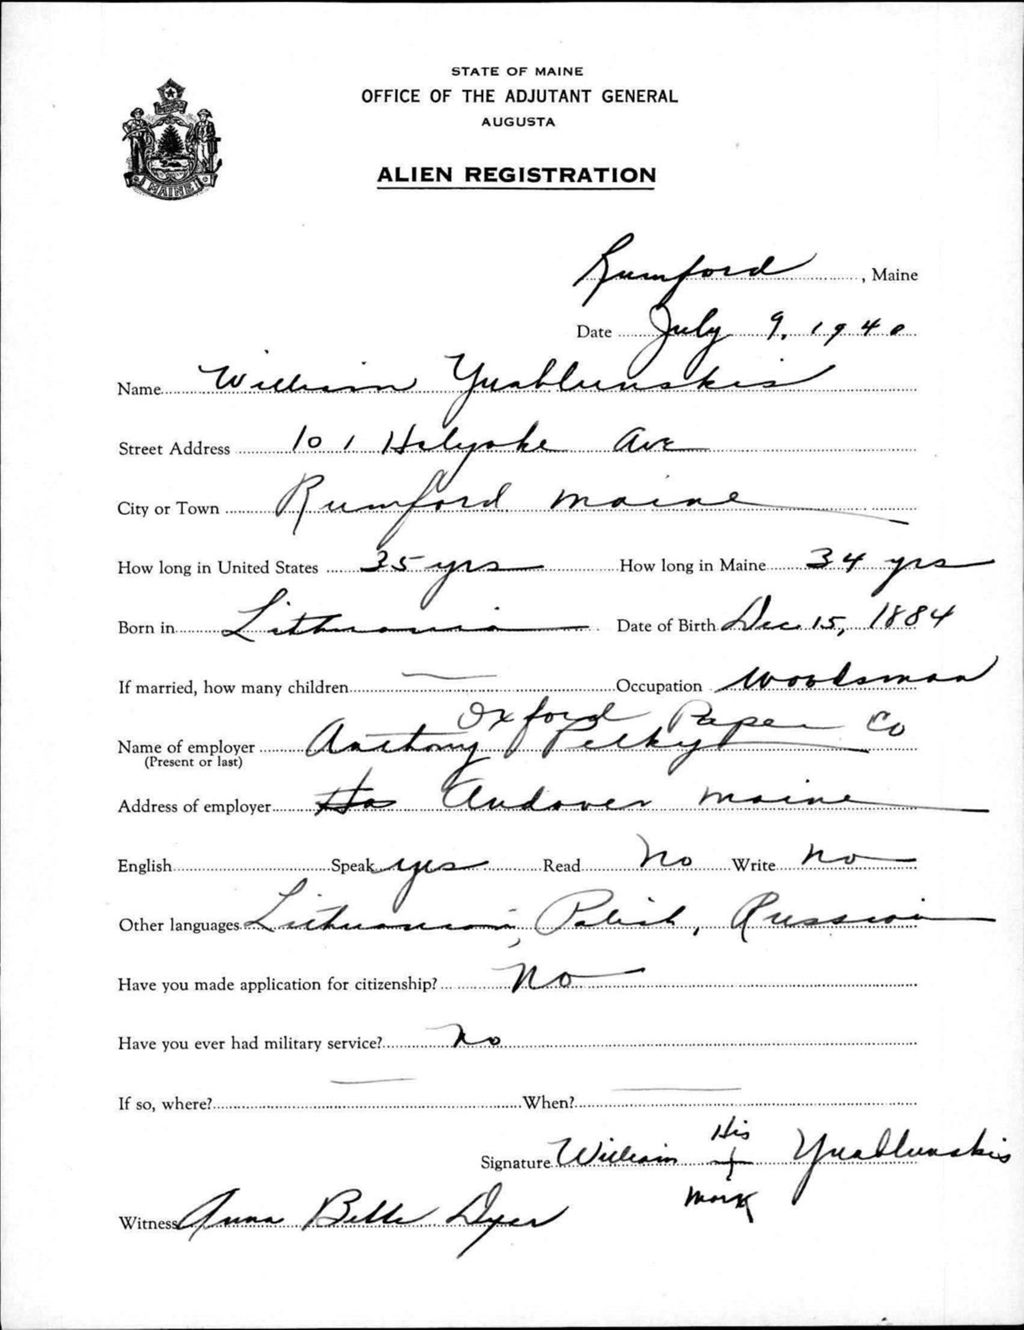 STATE OF MAINE
OFFICE OF THE ADJUTANT GENERAL
AUGUSTA
ALIEN REGISTRATION
MAINE
Rumford, Maine
Date July 9, 1940
Name William Yuablunskis
Street Address 101 Holyoke Ave
City or Town Rumford Maine
How long in United States 35 yrs How long in Maine 34 yrs
Born in Lithuania Date of Birth Dec 15, 1884
If married, how many children — Occupation Woodsman
Oxford Paper Co
Name of employer Anthony Pelky
(Present or last)
Address of employer Andover Maine
English Speak yes Read No Write No
Other languages Lithuanian, Polish, Russian
Have you made application for citizenship? No
Have you ever had military service? No
If so, where? — When? —
His
Signature William + Yuablunskis
mark
Witness Anna Belle Dyer